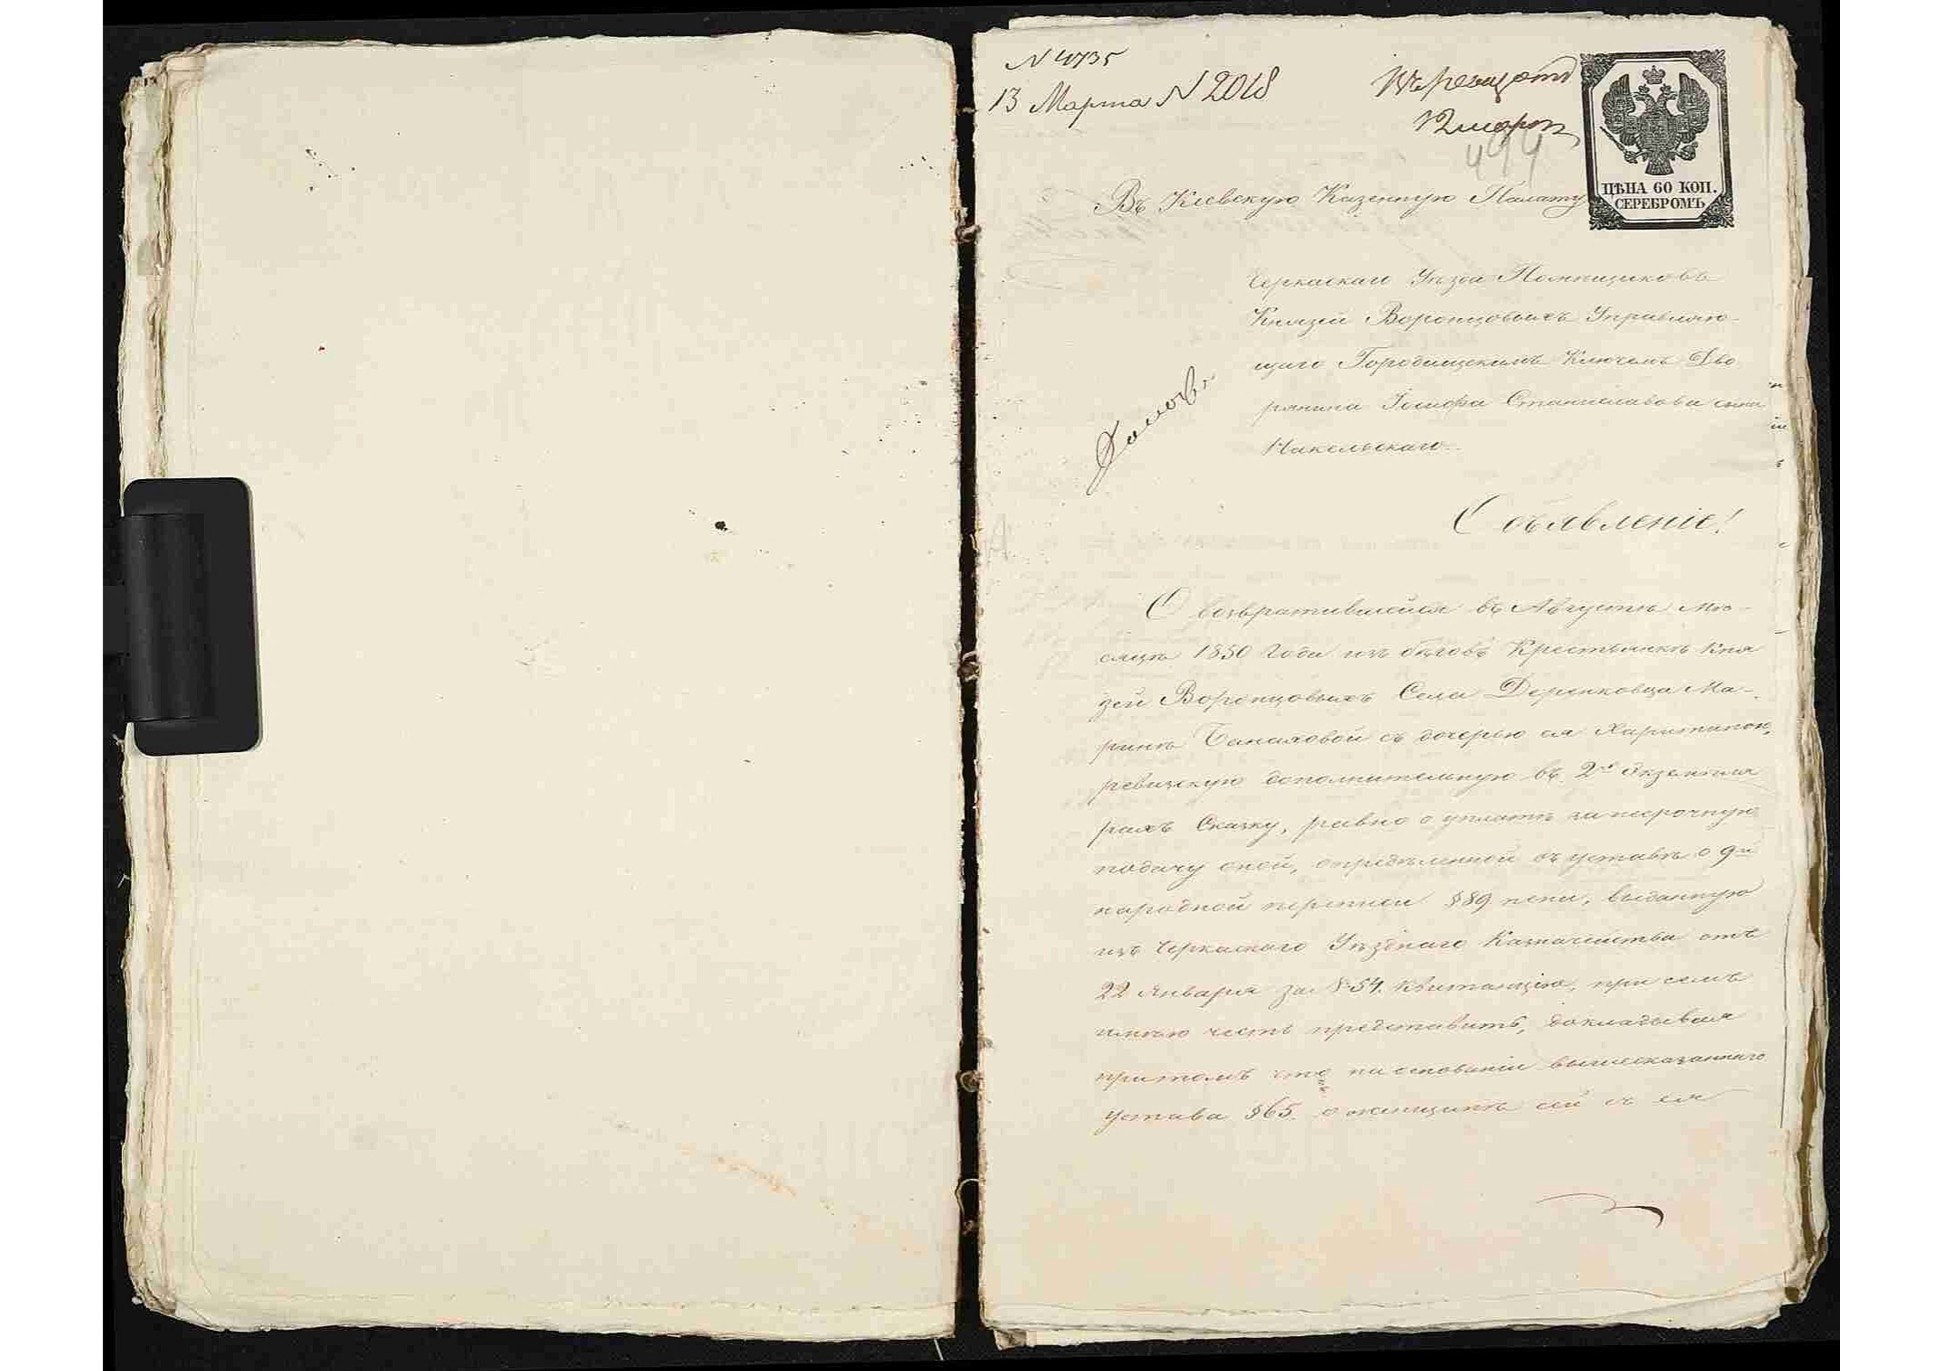 N 4735
13 Марта N 2018
494
ЦѢНА 60 КОП.
СЕРЕБРОМЪ
Въ Кіевскую Казенную Палату
Черкаскаго Уѣзда Помѣщиковъ
Князей Воронцовыхъ Управляю-
щаго Городищскимъ Ключемъ Дво
рянина Іосифа Станиславова сына
Накельскаго.
Объявленіе!
О возвратившейся въ Августѣ мѣ-
сяцѣ 1850 года изъ бѣговъ Крестьянкѣ Кня
зей Воронцовыхъ Села Деренковца Ма-
ринѣ Банаховой съ дочерью ея Харитиною,
ревизскую дополнительную въ 2хъ экземпля
рахъ Сказку, равно о уплатѣ за несрочную
подачу оной, опредѣленной въ уставѣ о 9й
народной переписи §89 пени, выданную
изъ Черкаскаго Уѣзднаго Казначейства отъ
22 Января за №54. квитанцію, при семъ
имѣю честь представить, докладывая
притомъ что на основаніи вышесказаннаго
устава §65. о женщинѣ сей съ ея